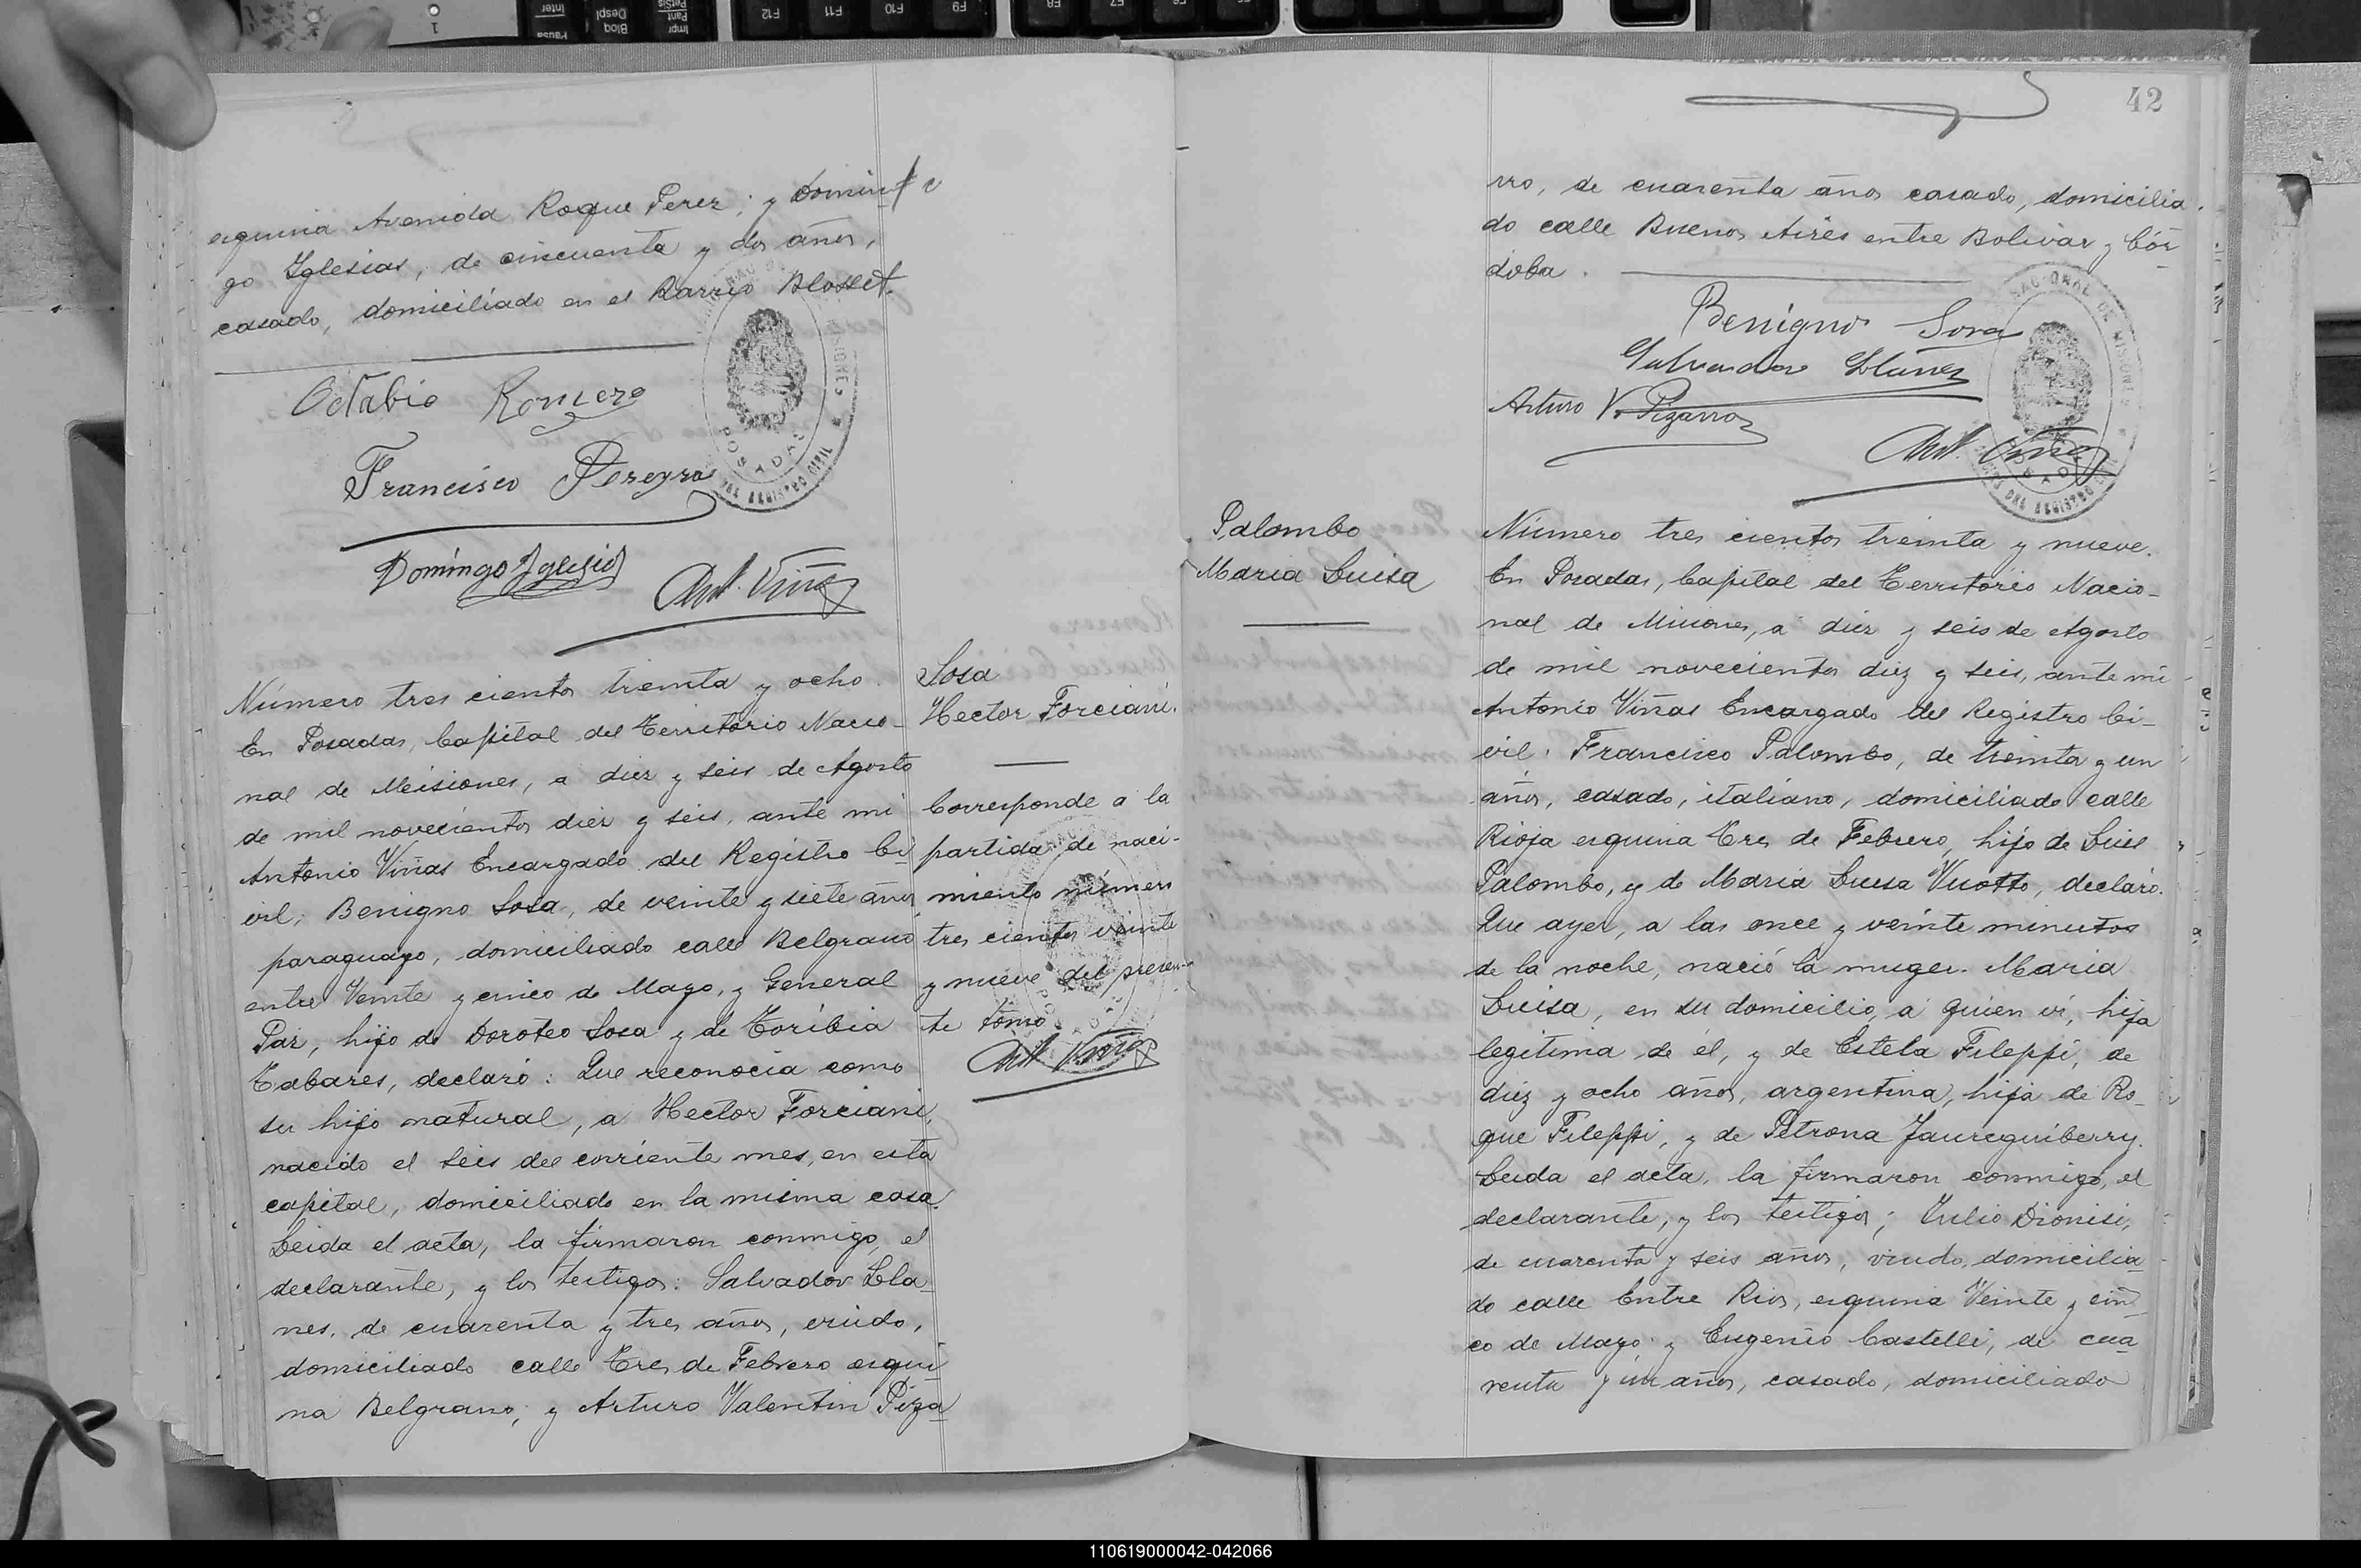 42
esquina Avenida Roque Perez; y Domin
go Iglesias, de cincuenta y dos años,
casado, domiciliado en el Barrio Blosset.
Octabio Romero
Francisco Pereyra
Domingo Iglesias
Ant. Viñas
Sosa
Hector Forciani.
Número tres cientos treinta y ocho.
En Posadas, Capital del Territorio Nacio-
nal de Misiones, a diez y seis de Agosto
de mil novecientos diez y seis, ante mi
Antonio Viñas Encargado del Registro Ci
vil; Benigno Sosa, de veinte y siete años
paraguayo, domiciliado calle Belgrano
entre Veinte y cinco de Mayo, y General
Paz, hijo de Doroteo Sosa y de Toribia
Tabares, declaró: Que reconocia como
su hijo natural, a Hector Forciani,
nacido el seis del corriente mes, en esta
capital, domiciliado en la misma casa.
Leida el acta, la firmaron conmigo, el
declarante, y los testigos: Salvador Lla-
nes, de cuarenta y tres años, viudo,
domiciliado calle Tres de Febrero esqui
na Belgrano; y Arturo Valentin Piza
Corresponde a la
partida de naci-
miento número
tres cientos veinte
y nueve del presen-
te tomo
Ant. Viñas
rro, de cuarenta años casado, domicilia-
do calle Buenos Aires entre Bolivar y Cór
doba.
Benigno Sosa
Salvador Llanes
Arturo V. Pizarro
Ant. Viñas
Palombo
Maria Luisa
Número tres cientos treinta y nueve.
En Posadas, Capital del Territorio Nacio-
nal de Misiones, a diez y seis de Agosto
de mil novecientos diez y seis, ante mi
Antonio Viñas Encargado del Registro Ci-
vil. Francisco Palombo, de treinta y un
años, casado, italiano, domiciliado calle
Rioja esquina Tres de Febrero, hijo de Luis
Palombo, y de Maria Luisa Vuotto, declaró.
Que ayer, a las once y veinte minutos
de la noche, nació la muger. Maria
Luisa, en su domicilio, a quien vi, hija
legitima de él, y de Estela Fileppi, de
diez y ocho años, argentina, hija de Ro-
que Fileppi, y de Petrona Jaureguiberry.
Leida el acta, la firmaron conmigo, el
declarante, y los testigos; Tulio Dionisi,
de cuarenta y seis años, viudo, domicilia
do calle Entre Rios, esquina Veinte y cin
co de Mayo y Eugenio Castelli, de cua
renta y un años, casado, domiciliado
110619000042-042066